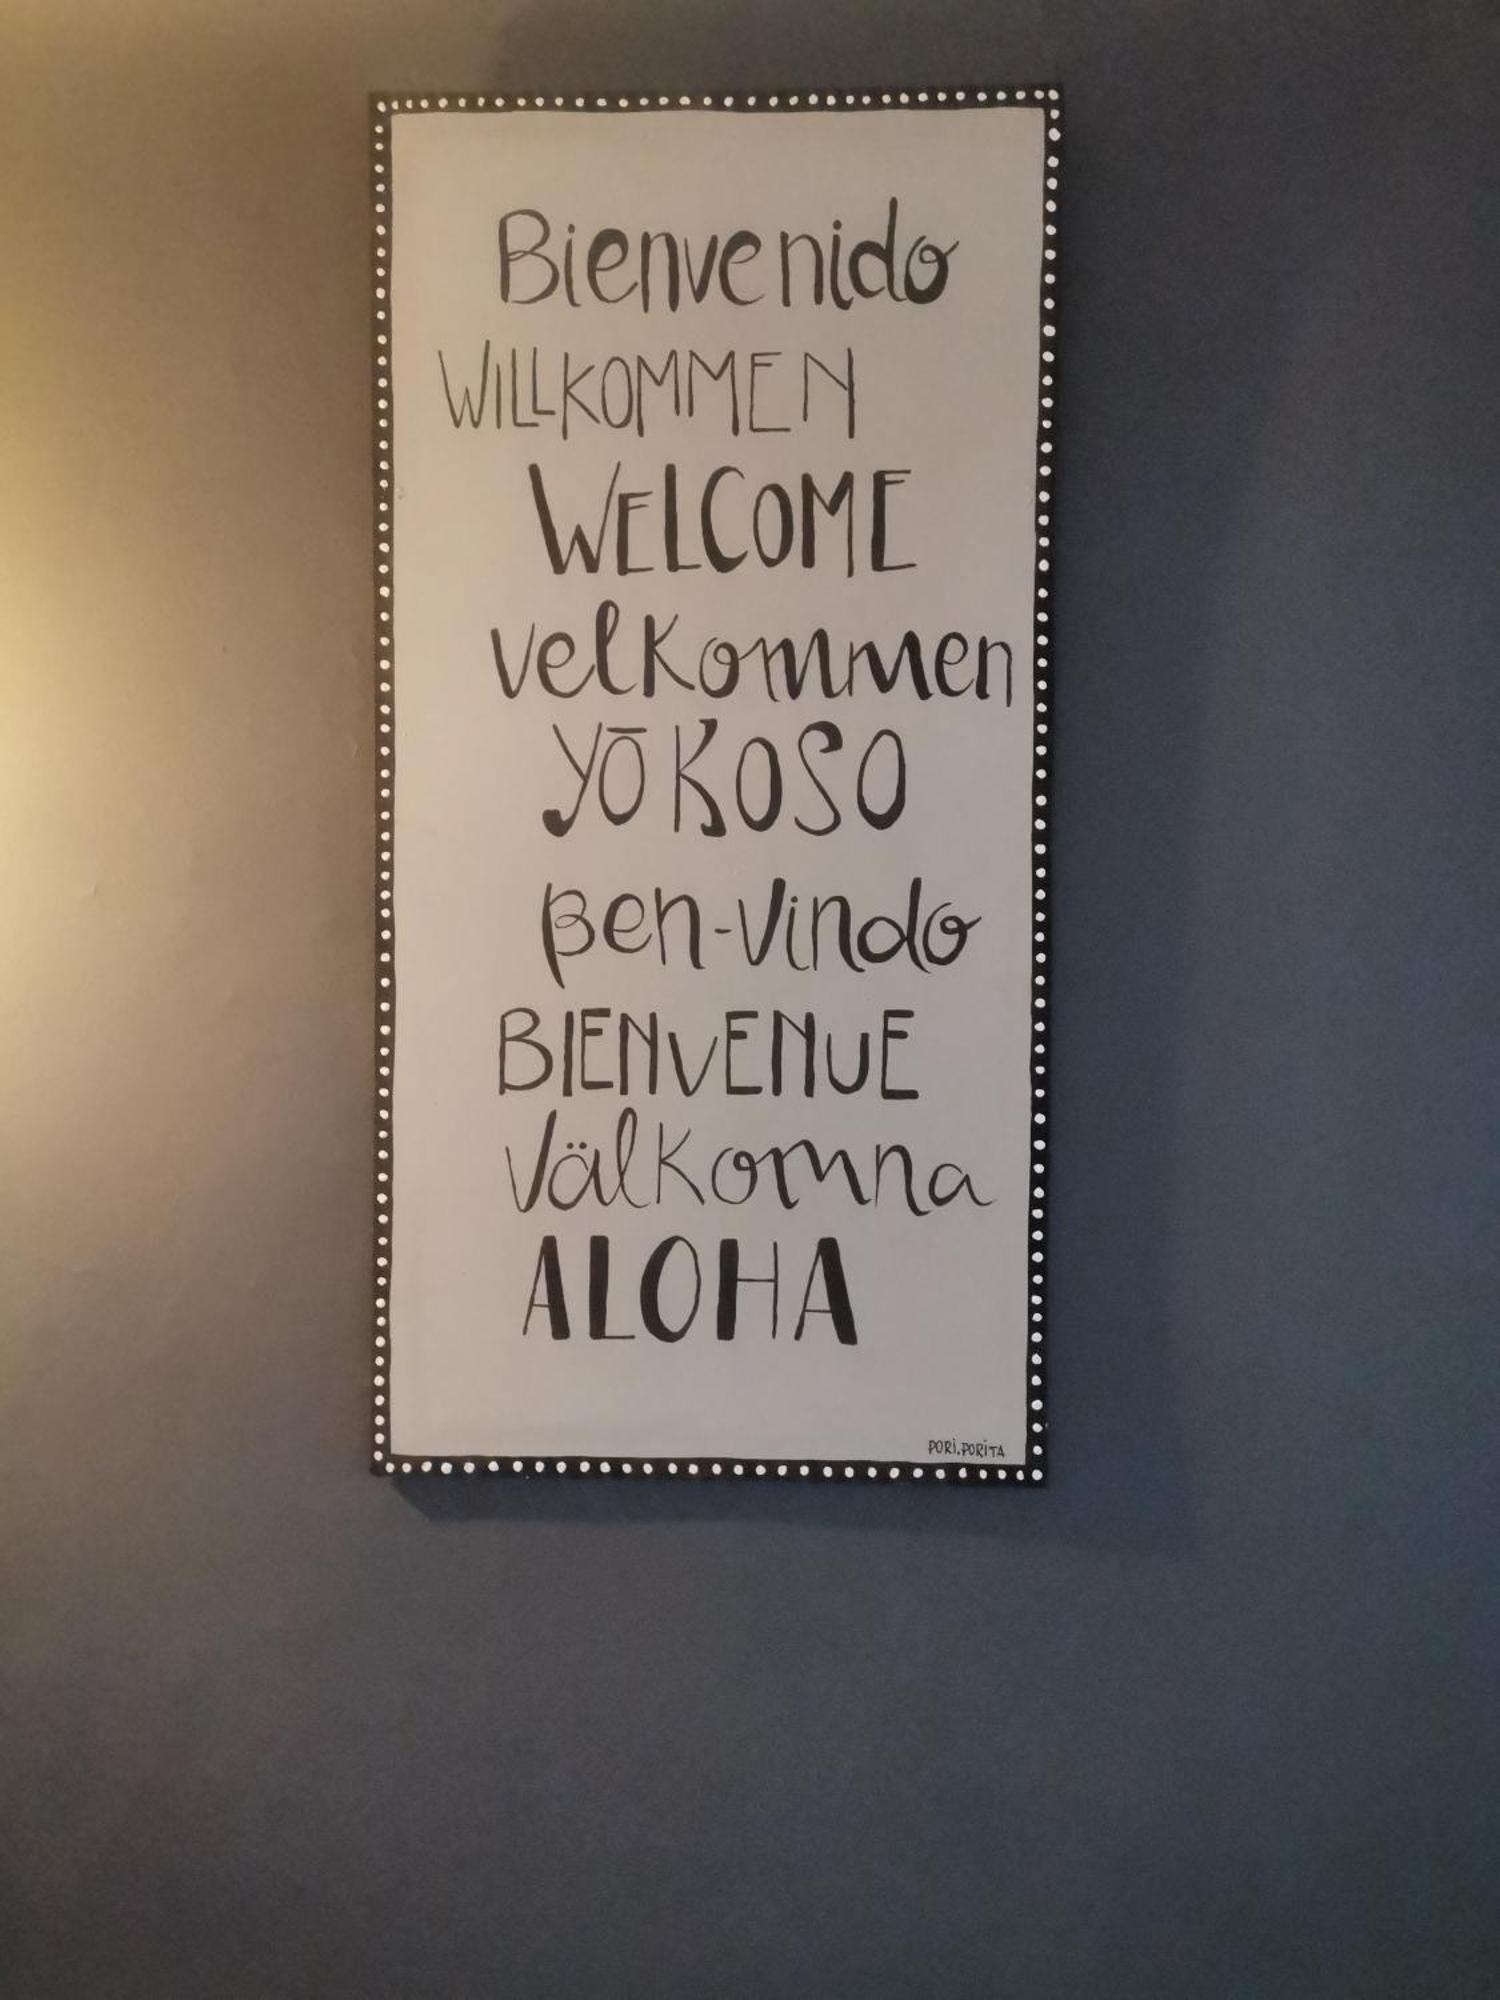 Bienvenido
WILLKOMMEN
WELCOME
velkommen
YŌKOSO
Ben-Vindo
BIENVENUE
Välkomna
ALOHA
PORI.PORITA